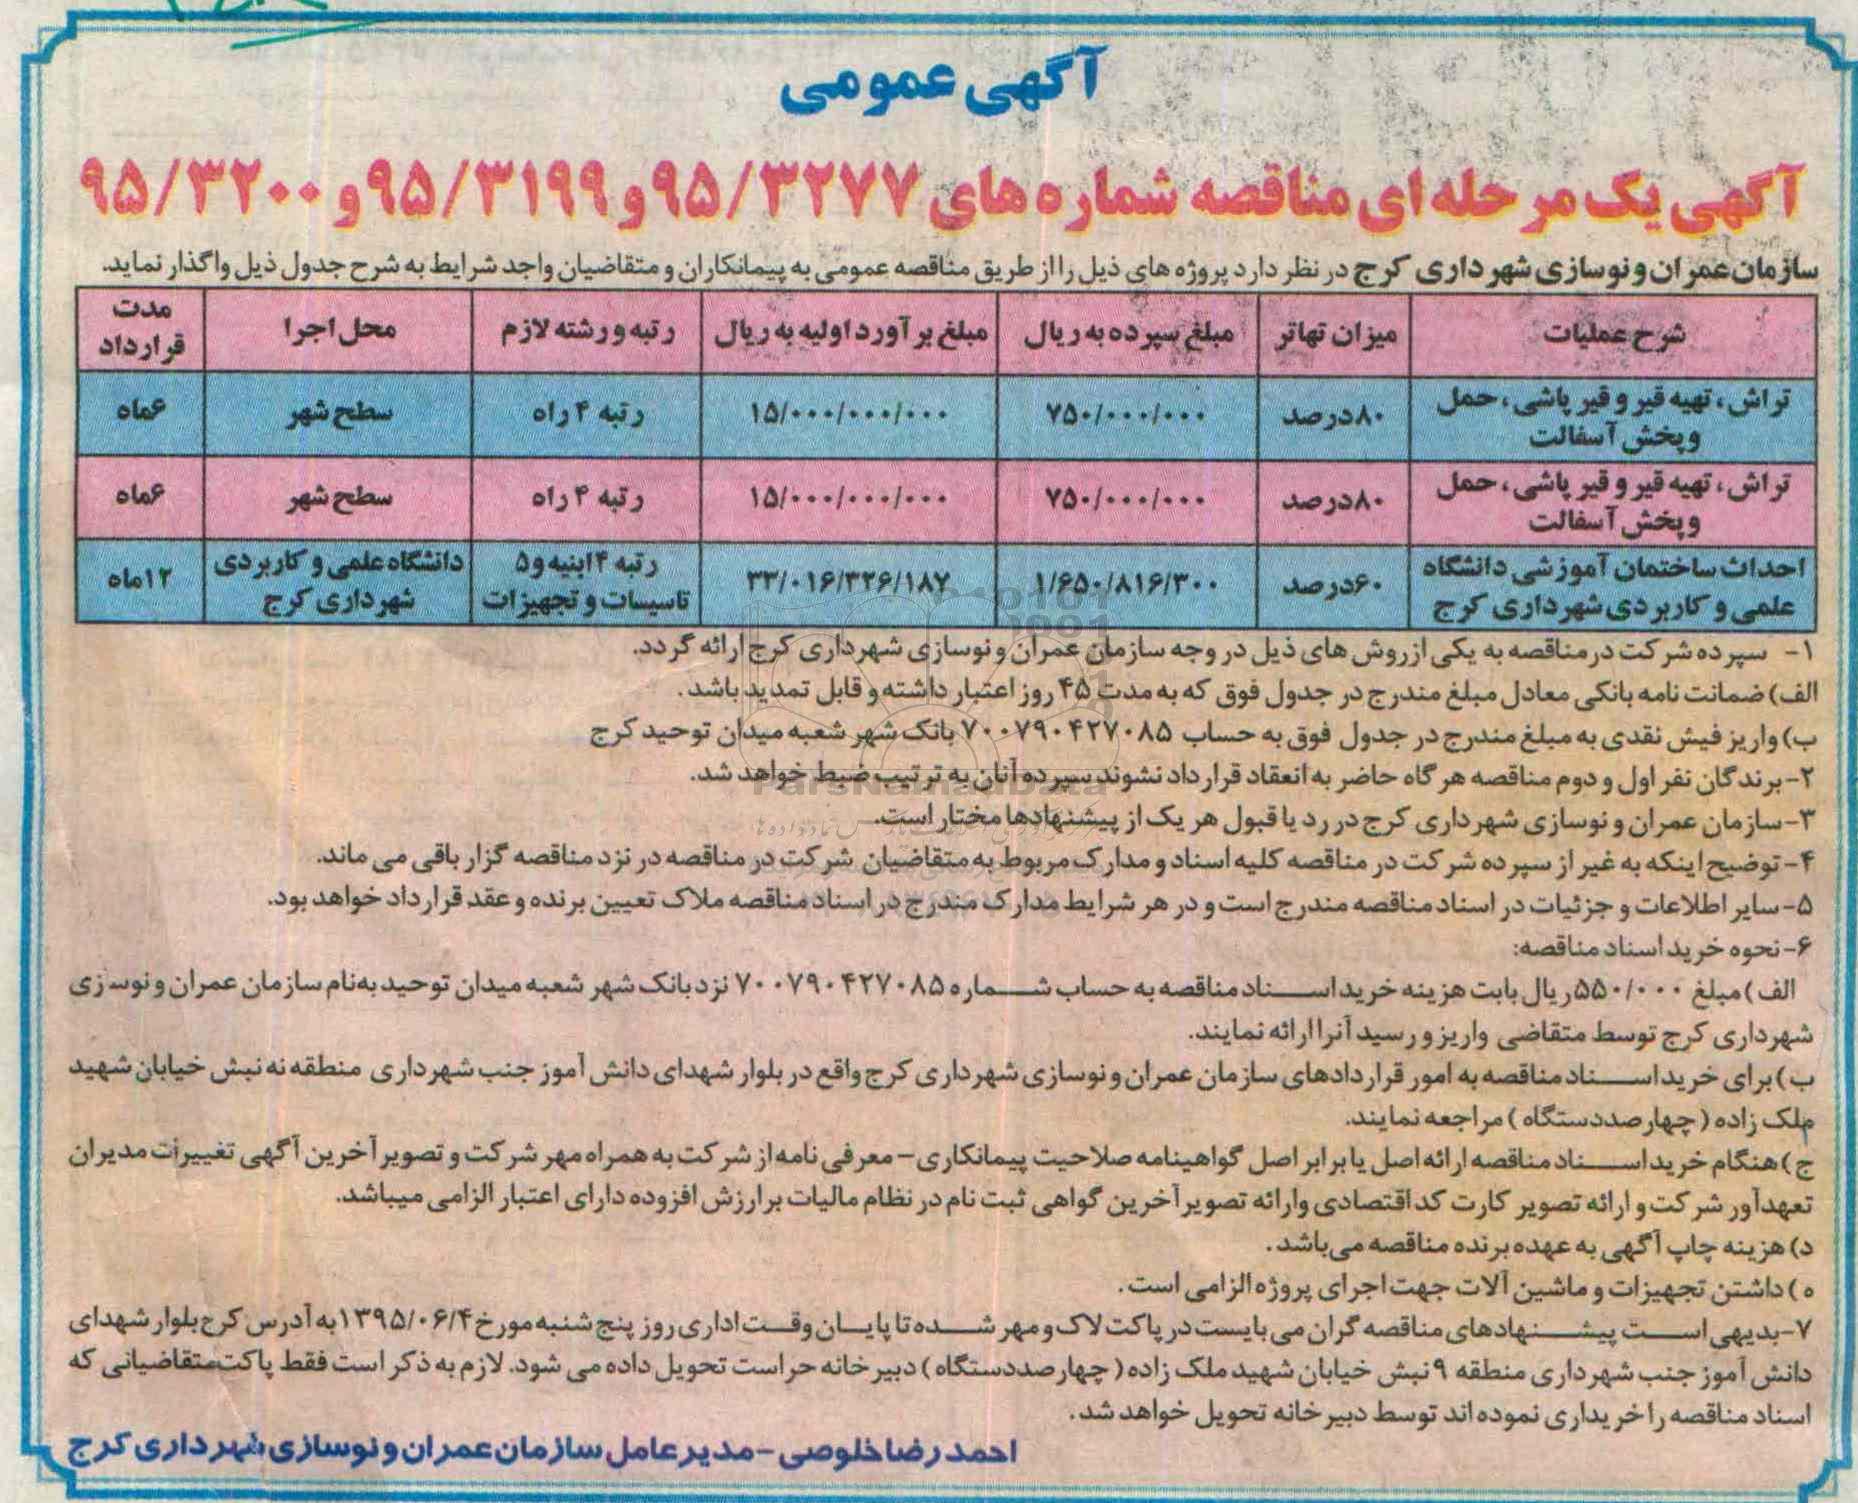 آگهی عمومی
آگهی یک مرحله ای مناقصه شماره های ۹۵/۳۲۷۷ و ۹۵/۳۱۹۹ و ۹۵/۳۲۰۰
سازمان عمران و نوسازی شهرداری کرج در نظر دارد پروژه های ذیل را از طریق مناقصه عمومی به پیمانکاران و متقاضیان واجد شرایط به شرح جدول ذیل واگذار نماید.
شرح عملیات | میزان تهاتر | مبلغ سپرده به ریال | مبلغ برآورد اولیه به ریال | رتبه و رشته لازم | محل اجرا | مدت قرارداد
تراش، تهیه قیر و قیر پاشی، حمل و پخش آسفالت | ۸۰درصد | ۷۵۰/۰۰۰/۰۰۰ | ۱۵/۰۰۰/۰۰۰/۰۰۰ | رتبه ۴ راه | سطح شهر | ۶ماه
تراش، تهیه قیر و قیر پاشی، حمل و پخش آسفالت | ۸۰درصد | ۷۵۰/۰۰۰/۰۰۰ | ۱۵/۰۰۰/۰۰۰/۰۰۰ | رتبه ۴ راه | سطح شهر | ۶ماه
احداث ساختمان آموزشی دانشگاه علمی و کاربردی شهرداری کرج | ۶۰درصد | ۱/۶۵۰/۸۱۶/۳۰۰ | ۳۳/۰۱۶/۳۲۶/۱۸۷ | رتبه ۴ ابنیه و ۵ تاسیسات و تجهیزات | دانشگاه علمی و کاربردی شهرداری کرج | ۱۲ماه
۱- سپرده شرکت در مناقصه به یکی از روش های ذیل در وجه سازمان عمران و نوسازی شهرداری کرج ارائه گردد.
الف) ضمانت نامه بانکی معادل مبلغ مندرج در جدول فوق که به مدت ۴۵ روز اعتبار داشته و قابل تمدید باشد.
ب) واریز فیش نقدی به مبلغ مندرج در جدول فوق به حساب ۷۰۰۷۹۰۴۲۷۰۸۵ بانک شهر شعبه میدان توحید کرج
۲- برندگان نفر اول و دوم مناقصه هرگاه حاضر به انعقاد قرارداد نشوند سپرده آنان به ترتیب ضبط خواهد شد.
۳- سازمان عمران و نوسازی شهرداری کرج در رد یا قبول هر یک از پیشنهادها مختار است.
۴- توضیح اینکه به غیر از سپرده شرکت در مناقصه کلیه اسناد و مدارک مربوط به متقاضیان شرکت در مناقصه در نزد مناقصه گزار باقی می ماند.
۵- سایر اطلاعات و جزئیات در اسناد مناقصه مندرج است و در هر شرایط مدارک مندرج در اسناد مناقصه ملاک تعیین برنده و عقد قرارداد خواهد بود.
۶- نحوه خرید اسناد مناقصه:
الف) مبلغ ۵۵۰/۰۰۰ ریال بابت هزینه خرید اسناد مناقصه به حساب شماره ۷۰۰۷۹۰۴۲۷۰۸۵ نزد بانک شهر شعبه میدان توحید به نام سازمان عمران و نوسازی
شهرداری کرج توسط متقاضی واریز و رسید آنرا ارائه نمایند.
ب) برای خرید اسناد مناقصه به امور قراردادهای سازمان عمران و نوسازی شهرداری کرج واقع در بلوار شهدای دانش آموز جنب شهرداری منطقه نه نبش خیابان شهید
ملک زاده (چهارصددستگاه) مراجعه نمایند.
ج) هنگام خرید اسناد مناقصه ارائه اصل یا برابر اصل گواهینامه صلاحیت پیمانکاری – معرفی نامه از شرکت به همراه مهر شرکت و تصویر آخرین آگهی تغییرات مدیران
تعهدآور شرکت و ارائه تصویر کارت کد اقتصادی و ارائه تصویر آخرین گواهی ثبت نام در نظام مالیات بر ارزش افزوده دارای اعتبار الزامی میباشد.
د) هزینه چاپ آگهی به عهده برنده مناقصه می باشد.
ه) داشتن تجهیزات و ماشین آلات جهت اجرای پروژه الزامی است.
۷- بدیهی است پیشنهادهای مناقصه گران می بایست در پاکت لاک و مهر شده تا پایان وقت اداری روز پنج شنبه مورخ ۱۳۹۵/۰۶/۴ به آدرس کرج بلوار شهدای
دانش آموز جنب شهرداری منطقه ۹ نبش خیابان شهید ملک زاده (چهارصددستگاه) دبیرخانه حراست تحویل داده می شود. لازم به ذکر است فقط پاکت متقاضیانی که
اسناد مناقصه را خریداری نموده اند توسط دبیرخانه تحویل خواهد شد.
احمدرضا خلوصی – مدیرعامل سازمان عمران و نوسازی شهرداری کرج
ParsNamadData